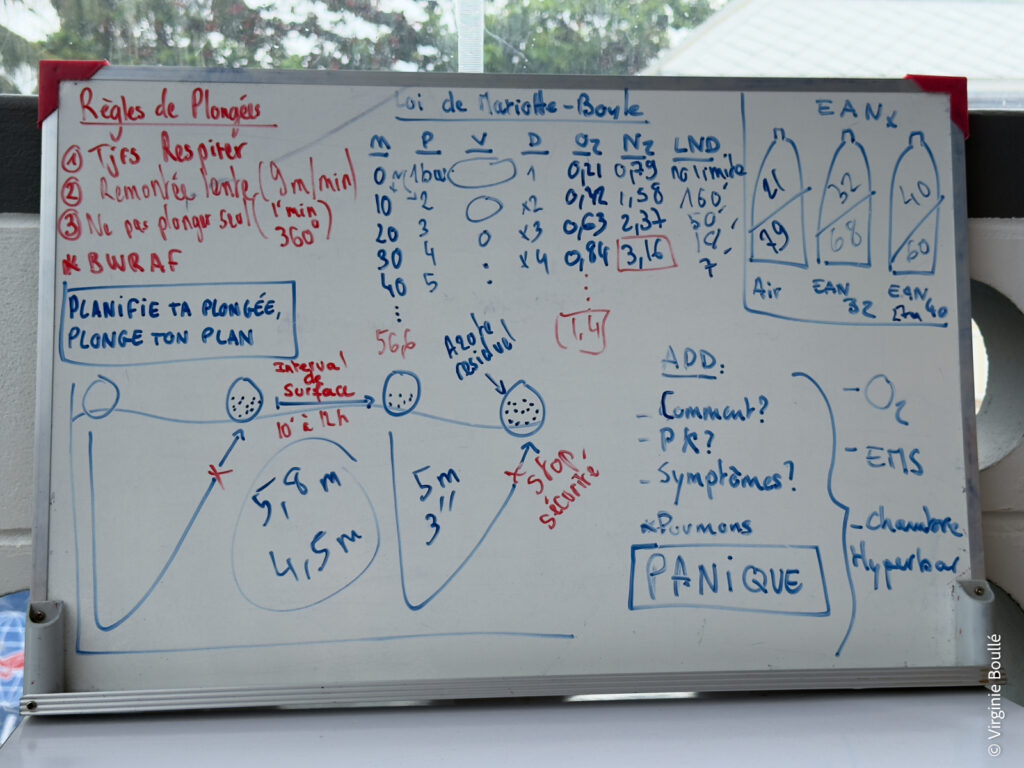 Règles de Plongées
① Tjrs Respirer
② Remontée lente (9m/min)
③ Ne pas plonger seul (1' min 360°)
* BWRAF
PLANIFIE TA PLONGÉE,
PLONGE TON PLAN
Loi de Mariotte-Boyle
m P V D O2 N2 LND
0 1bar 1 0,21 0,79 no limite
10 2 x2 0,42 1,58 160'
20 3 x3 0,63 2,37 50'
30 4 x4 0,84 3,16
40 5 7'
56,6 1,4
EANx
21 32 40
79 68 60
Air EAN 32 EAN 40
Interval
de
Surface
10' à 12h
Azote
residual
5,8 m
4,5 m
5m
3"
Stop
sécurité
ADD:
- Comment?
- PK?
- Symptômes?
* Poumons
PANIQUE
- O2
- EMS
- Chambre
Hyperbar
© Virginie Boullé